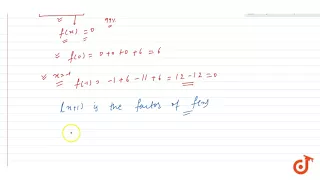 f(x) = 0
f(0) = 0+0+0+6 = 6
x=-1 f(x) = -1+6-11+6 = 12-12=0
(x+1) is the factor of f(x)